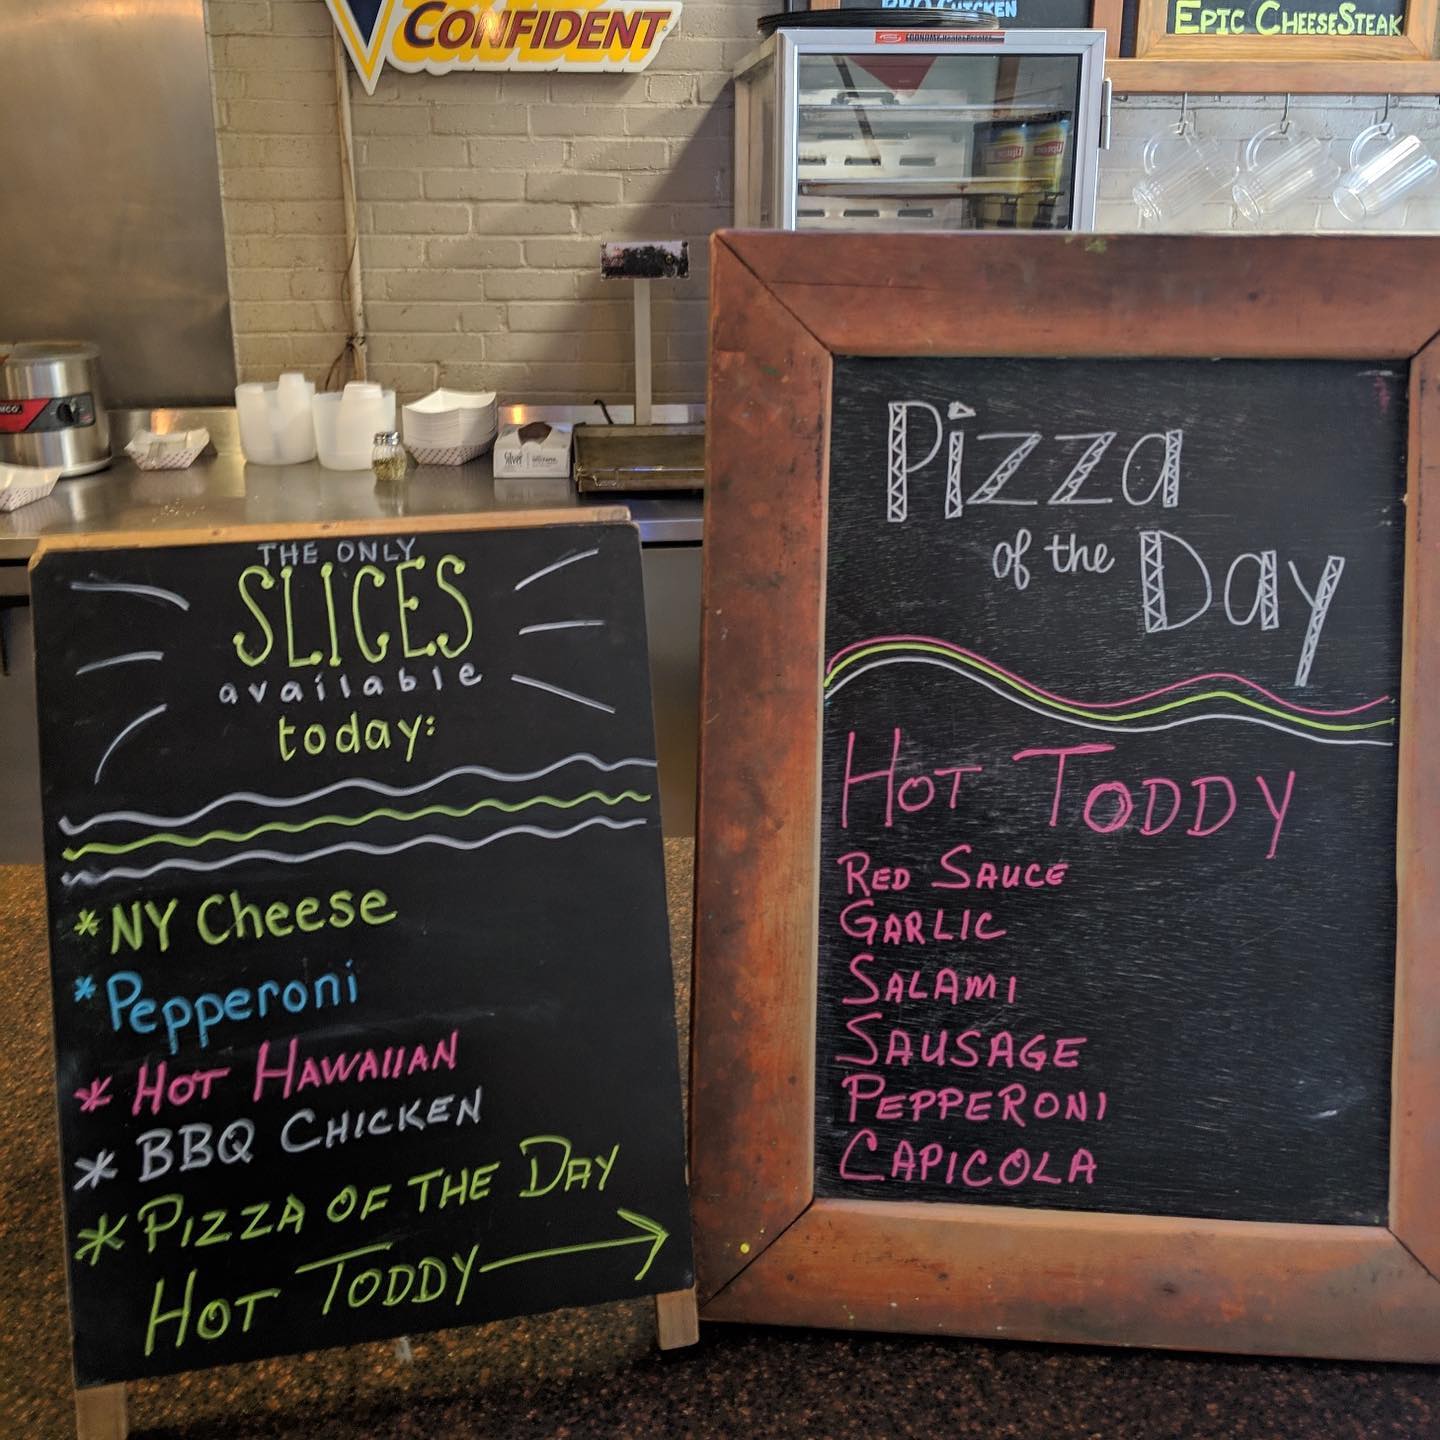 CONFIDENT
BBQ CHICKEN
EPIC CHEESESTEAK
THE ONLY
SLICES
available
today:
*NY Cheese
*Pepperoni
* HOT HAWAIIAN
* BBQ CHICKEN
* PIZZA OF THE DAY
HOT TODDY
Pizza
of the Day
HOT TODDY
RED SAUCE
GARLIC
SALAMI
SAUSAGE
PEPPERONI
CAPICOLA
Lipton
Lipton